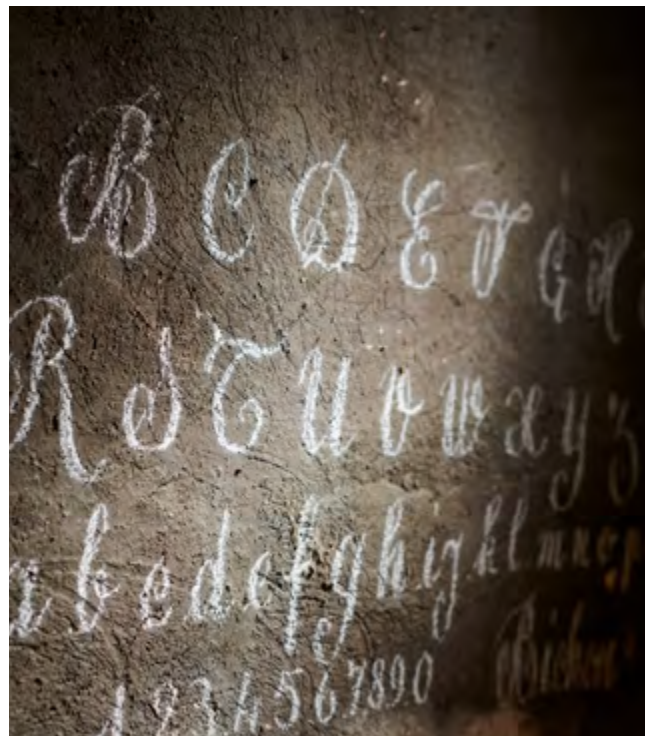 B C D E F G H
R S T U V W X Y Z
a b c d e f g h i j k l m n o p
1 2 3 4 5 6 7 8 9 0